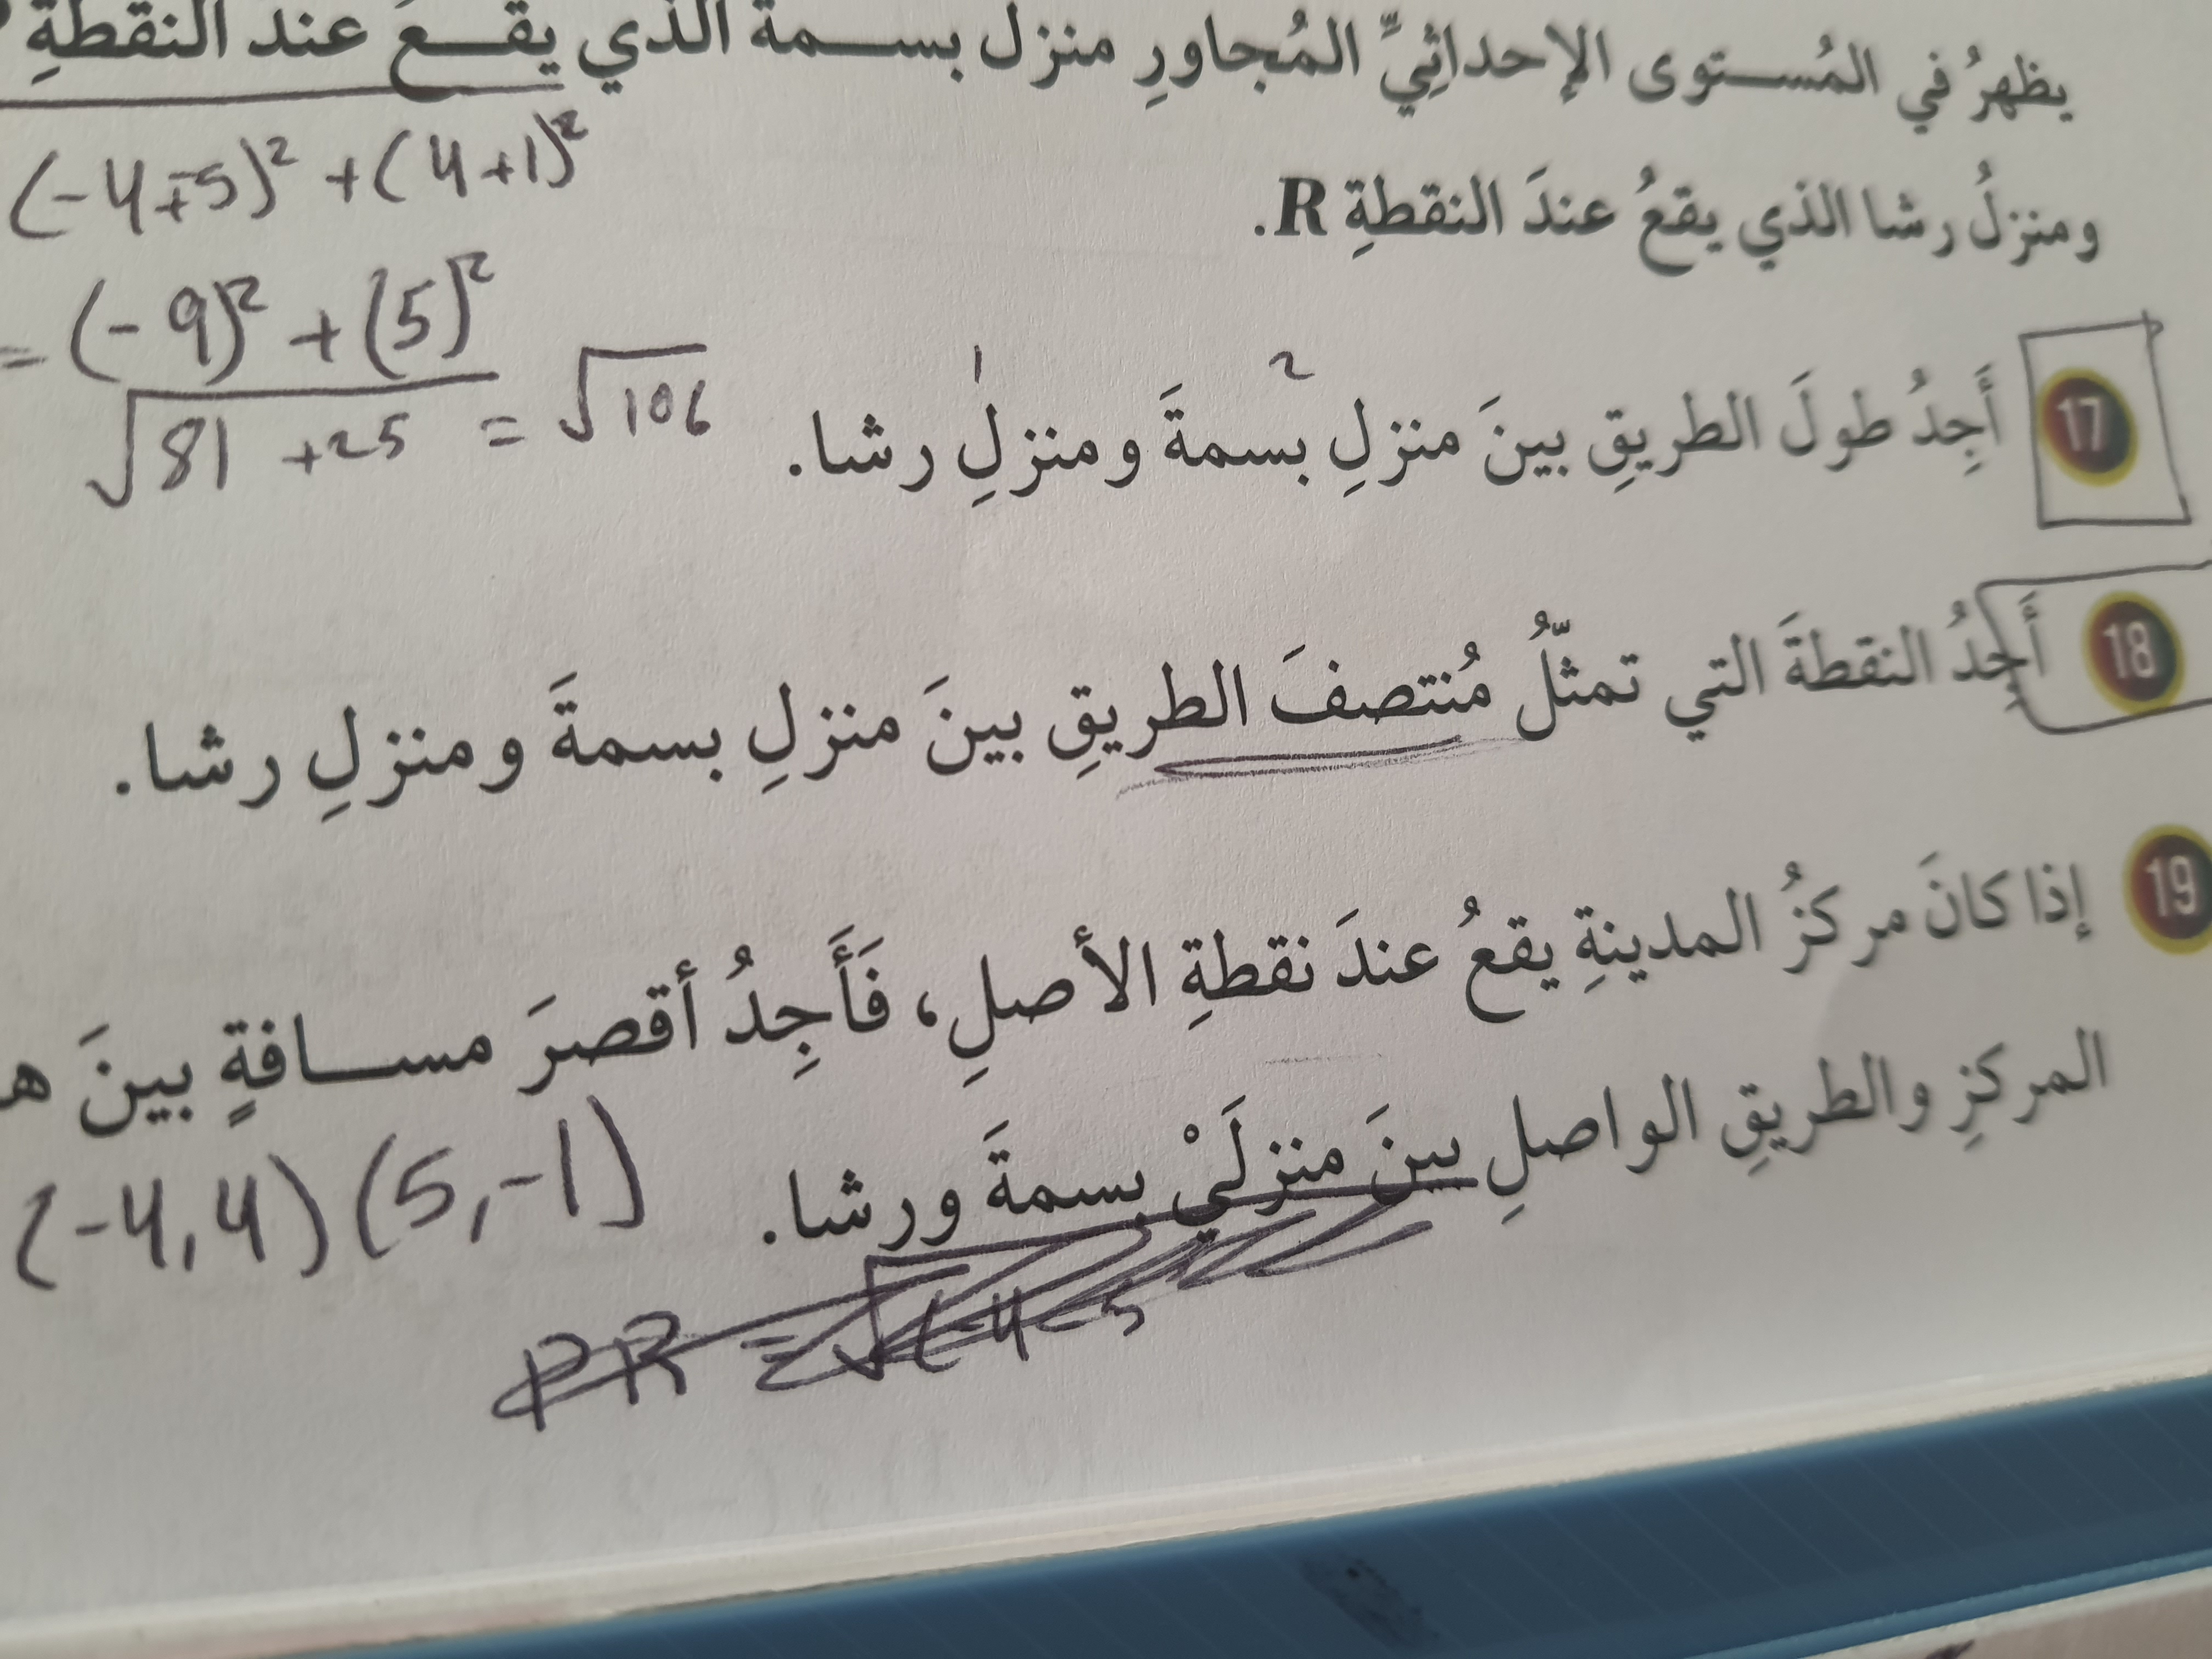 يظهرُ في المُستوى الإحداثيِّ المُجاورِ منزل بسمة الذي يقع عند النقطةِ
(-4+-5)² + (4+1)²
ومنزلُ رشا الذي يقعُ عندَ النقطةِ R.
= (-9)² + (5)²
17 أَجِدُ طولَ الطريقِ بينَ منزلِ بسمةَ ومنزلِ رشا.
2 1
√81 +25 = √106
18 أَجِدُ النقطةَ التي تمثّلُ مُنتصفَ الطريقِ بينَ منزلِ بسمةَ ومنزلِ رشا.
19 إذا كانَ مركزُ المدينةِ يقعُ عندَ نقطةِ الأصلِ، فَأَجِدُ أقصرَ مسافةٍ بينَ ه
المركزِ والطريقِ الواصلِ بينَ منزلَيْ بسمةَ ورشا.
(-4,4) (5,-1)
PR = √(-4-5